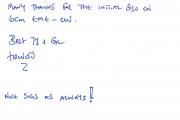 MANY THANKS FOR THE INITIAL QSO ON
6CM EME - CW.
BEST 73 & GL
HOWARD
NICE SIGS AS ALWAYS!